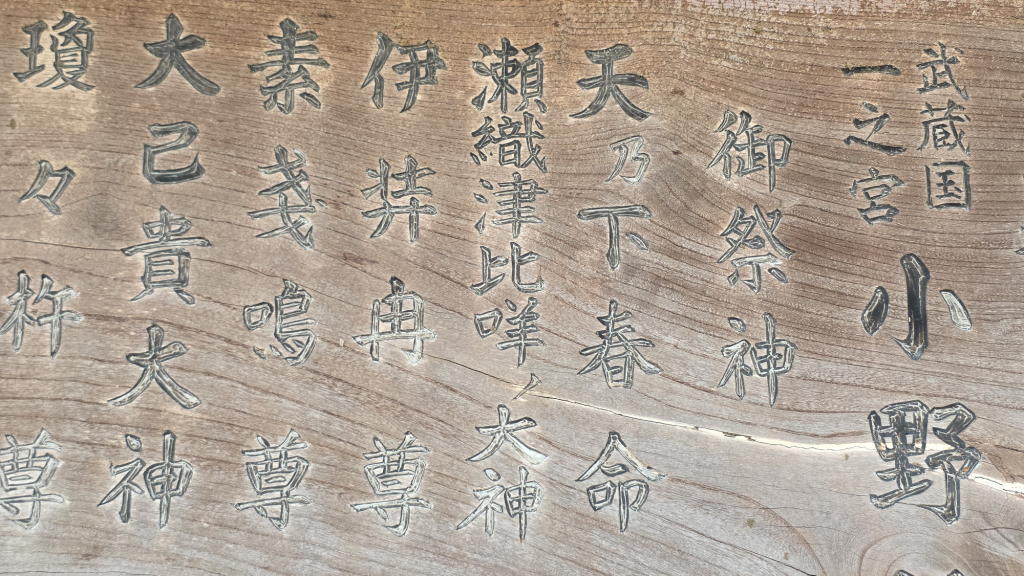 武蔵国
一之宮
小野
御祭神
天乃下春命
瀬織津比咩ノ大神
伊弉冉尊
素戔嗚尊
大己貴大神
瓊々杵尊